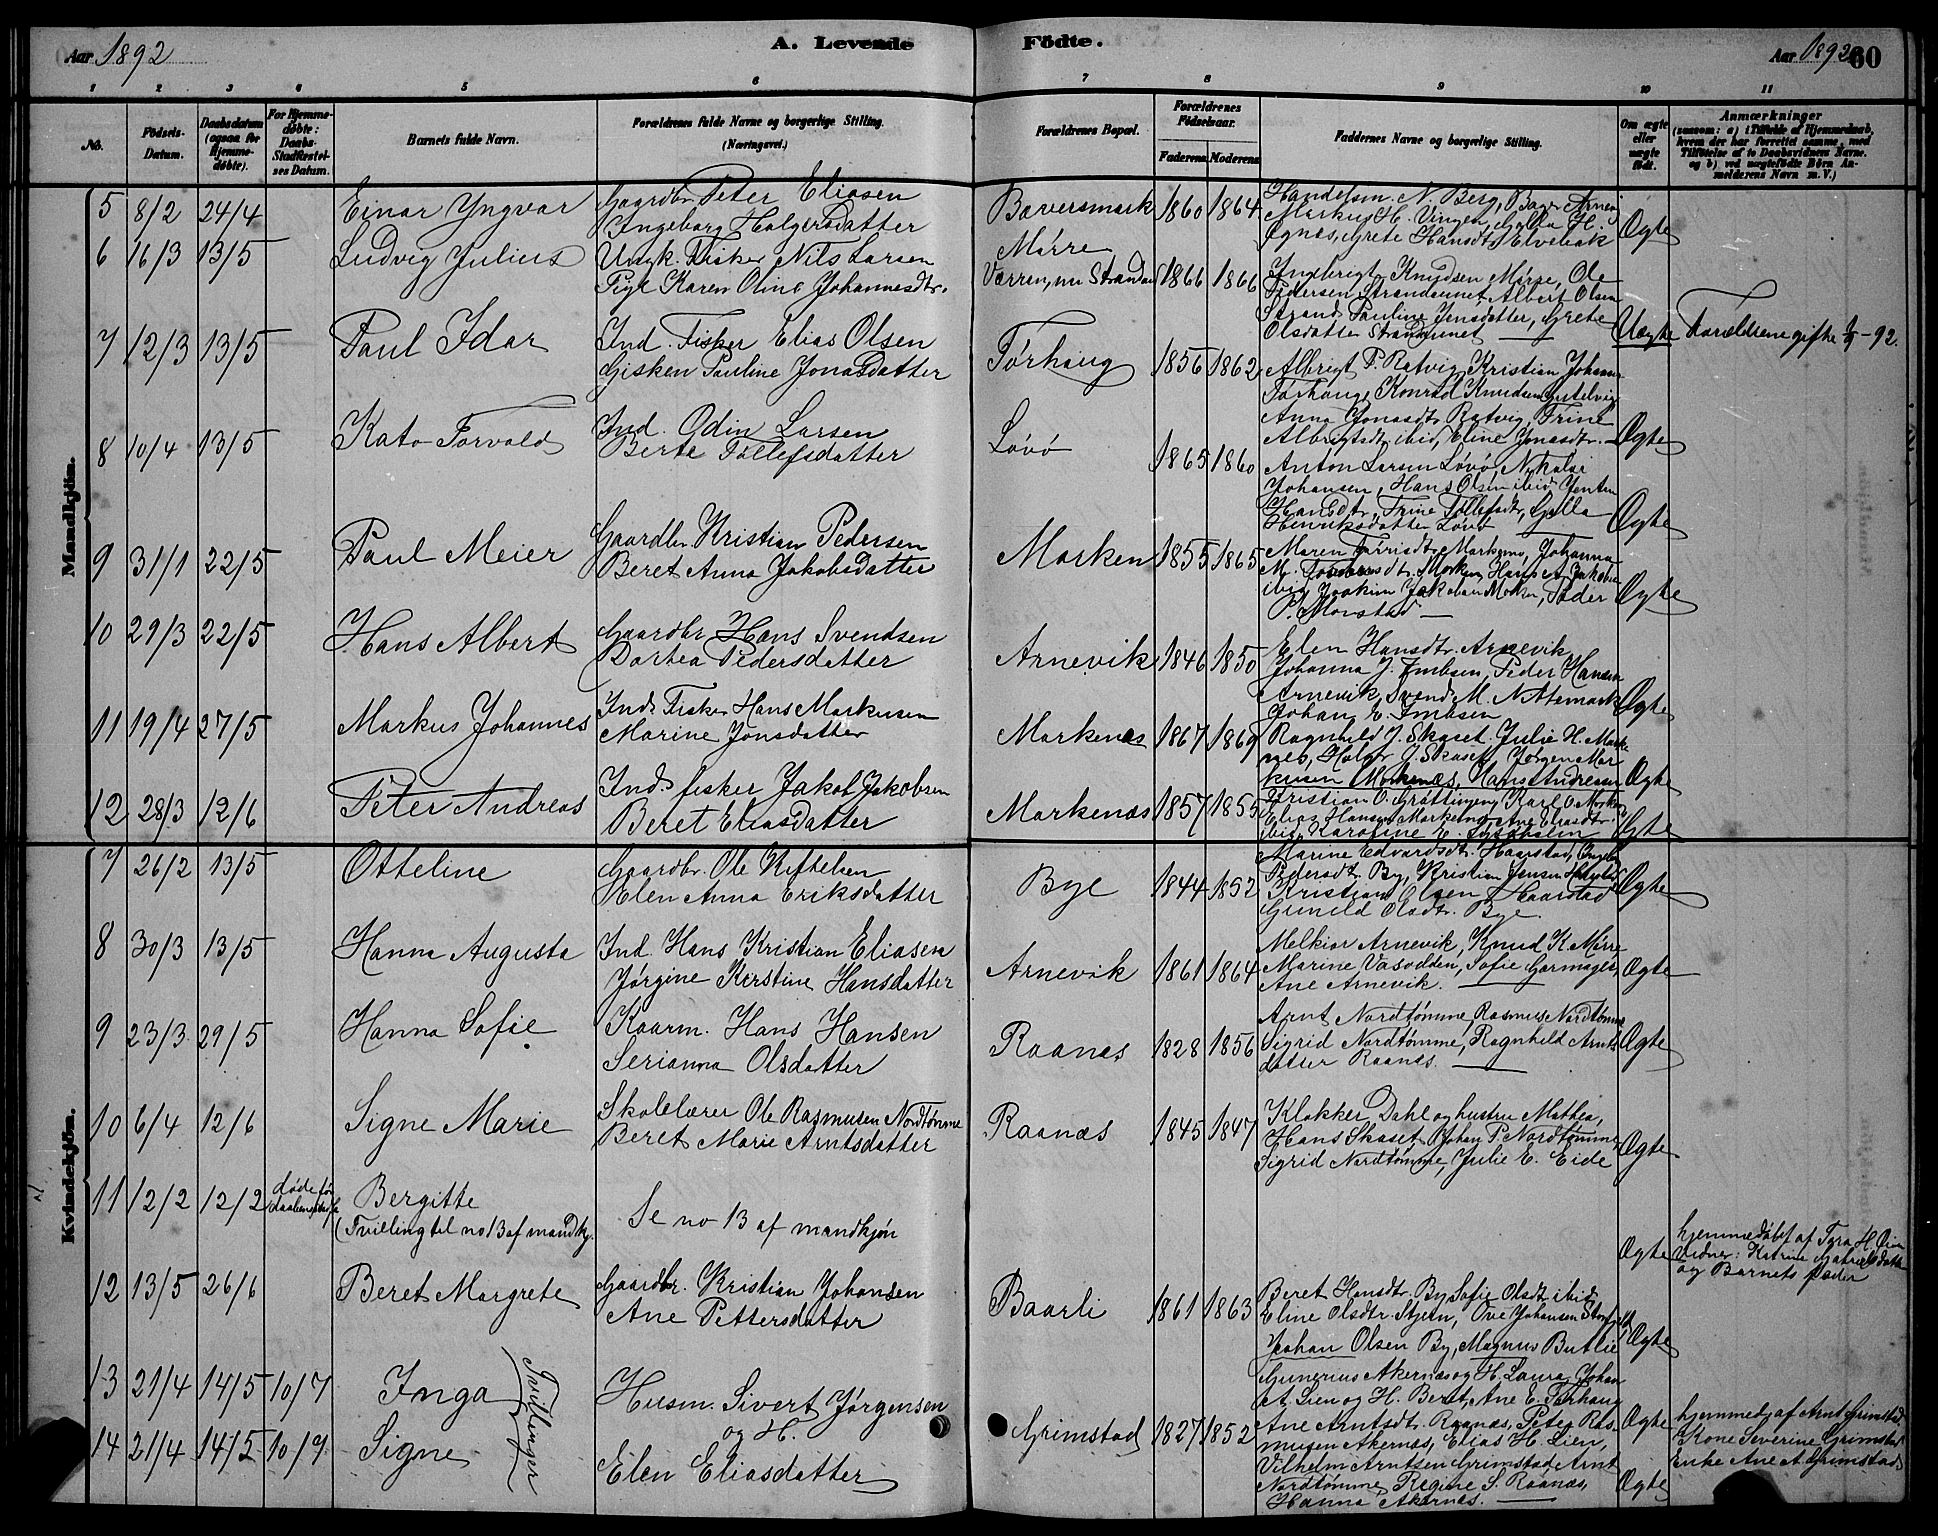 Aar 1892
A. Levende Födte.
Aar 1892
60
1 2 3 4 5 6 7 8 9 10 11
No.
Födsels-Datum.
Daabsdatum (ogsaa for Hjemmedøbte).
For Hjemmedøbte: Daabs-Stadfæstelses Datum.
Barnets fulde Navn.
Forældrenes fulde Navne og borgerlige Stilling.
(Næringsvei.)
Forældrenes Bopæl.
Forældrenes Födselsaar.
Faderens Moderens
Faddernes Navne og borgerlige Stilling.
Om ægte eller uægte födt.
Anmærkninger
Mandkjön.
5 8/2 24/4 Einar Yngvar
Gaardbr. Peter Eliasen
Ingeborg Holgersdatter
Bøversmark 1860 1864
Handelsm. N. Berg,
Markus H. Vingen,
Grete Hansdt. Elvebak
Ægte
6 16/3 13/5 Ludvig Julius
Ungk. Fisker Nils Larsen
Pige Karen Oline Johannesdtr.
Mørre
1866 1866
Ingbrigt Knudsen Mørre, Ole
Pedersen Strandsunet, Albert Olsen
Strand, Pauline Jensdatter, Grete
Olsdatter Strandsunet
Uægte
Forældrene gifte
7 12/3 13/5 Paul Idar
Ind. Fisker Elias Olsen
Gisken Pauline Jonasdatter
Tørhaug 1856 1862
Albrigt P. Ratvig, Kristian Johans
Tørhaug, Konrad Knudsen
Anna Jonasdtr. Ratvig, Trine
Albrigtsdt. ibid, Eline Jonasdtr.
Ægte
8 10/4 13/5 Kato Torvald
Ind. Odin Larsen
Berte Tollefsdatter
Løvø
1865 1860
Anton Larsen Løvø, Nikolai
Johansen, Hans Olsen ibid, Jenten
Hansdtr., Trine Tollefsdtr, Gjella
Henriksdatter Løvø
Ægte
9 31/1 22/5 Paul Meier
Gaardbr. Kristian Pedersen
Beret Anna Jakobsdatter
Morken 1855 1865
Maren Tørrisdtr. Markenes, Johanna
ibid, Joakim Jakobsen Morken, Peder
P. Monstad
Ægte
10 29/3 22/5 Hans Albert
Gaardbr. Hans Svendsen
Dortea Pedersdatter
Arnevik 1846 1850
Elen Hansdtr. Arnevik,
Johanna J. Imbsen, Peder Hansen
Arnevik, Svend M. Nottemark
Johan E. Imbsen
Ægte
11 19/4 27/5 Markus Johannes
Ind. Fisker Hans Markusen
Marine Jonsdatter
Markenes 1867 1869
Ragnhild J. Skaset, Julie H. Marke
nes, Halvor J. Skaset, Jørgen Mar
kusen Markenæs, Hans Andreasen
Ægte
12 28/3 12/6 Peter Andreas
Ind. fisker Jakob Jakobsen
Beret Eliasdatter
Markenæs 1857 1855
Kristian O. Grøttingen, Karl O. Morken
Elias Hansen Markenes, Ane Eliasdtr.
ibid, Karoline E. Lysøholm
Ægte
Kvindekjön.
7 26/2 13/5 Otteline
Gaardbr. Ole Kristelsen
Elen Anna Eriksdatter
Bye 1844 1852
Marine Edvardsdt. Haarstad,
Pedersdt. By, Kristian Jensen
Kristian Olsen Haarstad
Gunild Olsdtr. Bye
Ægte
8 30/3 13/5 Hanna Augusta
Ind. Hans Kristian Eliasen
Jørgine Kirstine Hansdatter
Arnevik 1861 1864
Melkior Arnevik, Knud K. Mørre,
Marine Vasodden, Sofie Garmager,
Ane Arnevik.
Ægte
9 23/3 29/5 Hanna Sofie
Kaarm. Hans Hansen
Serianna Olsdatter
Raanes 1828 1856
Arnt Nordtømme, Rasmus Nordtømme
Sigrid Nordtømme, Ragnhild Arnts
datter Raanæs.
Ægte
10 6/4 12/6 Signe Marie
Skolelærer Ole Rasmusen Nordtømme
Beret Marie Arntsdatter
Raanæs 1845 1847
Klokker Dahl og hustru Mathea,
Hans Skaset, Johan P. Nordtømme
Sigrid Nordtømme, Julie E. Eide
Ægte
11 12/2 12/2 døde før
Bergitte
(Tvilling til no 13 af mandkj.
Se no 13 af mandkjøn
Ægte
hjemmedøbt af Tora H.
Vidner: Katrine Gabrielsdatter
og Barnets fader
12 13/5 26/6 Beret Margrete
Gaardbr. Kristian Johansen
Ane Pettersdatter
Baarli 1861 1863
Beret Hansdtr. By, Sofie Olsdt ibid,
Eline Olsdtr. Stjern, Ove Johansen Storfjeld
Johan Olsen By, Magnus Butlie
Ægte
13 21/4 14/5 10/7 Inga
14 21/4 14/5 10/7 Signe
Tvillinger
Husm. Sivert Jørgensen
og H.
Elen Eliasdatter
Grimstad 1827 1852
Gunerius Akernæs og H. Laura, Johan
A. Lien og H. Beret, Ane E. Tørhaug
Ane Arntsdt. Raanæs, Peter Ras-
musen Akernæs, Elias H. Lien,
Vilhelm Arntsen Grimstad, Arnt
Nordtømme, Regine S. Raanæs,
Hanna Akernæs.
Ægte
Ægte
hjemmedj af Arnt Grimstad
Kone Severine Grimstad
Enke Ane A. Grimstad